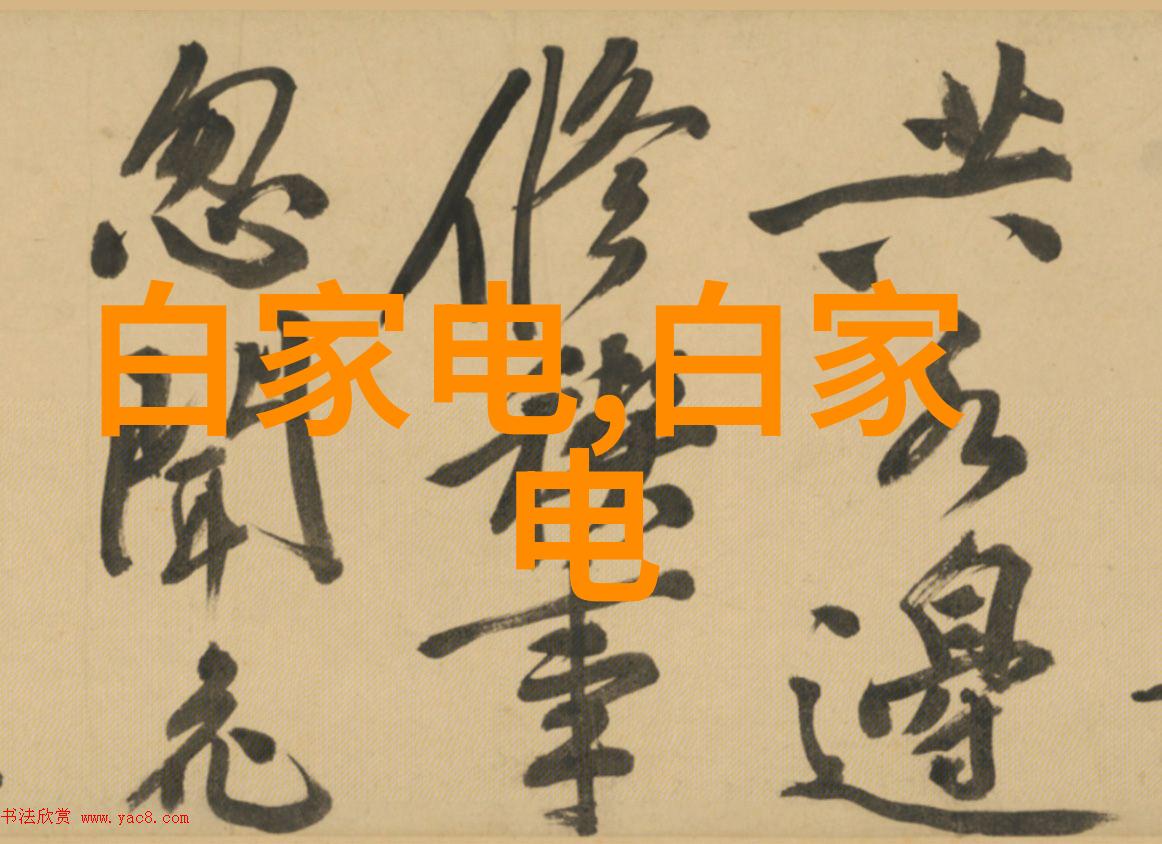 共 邊
修 事
忽聞
白家电,白家
电
书法欣赏 www.yac8.com